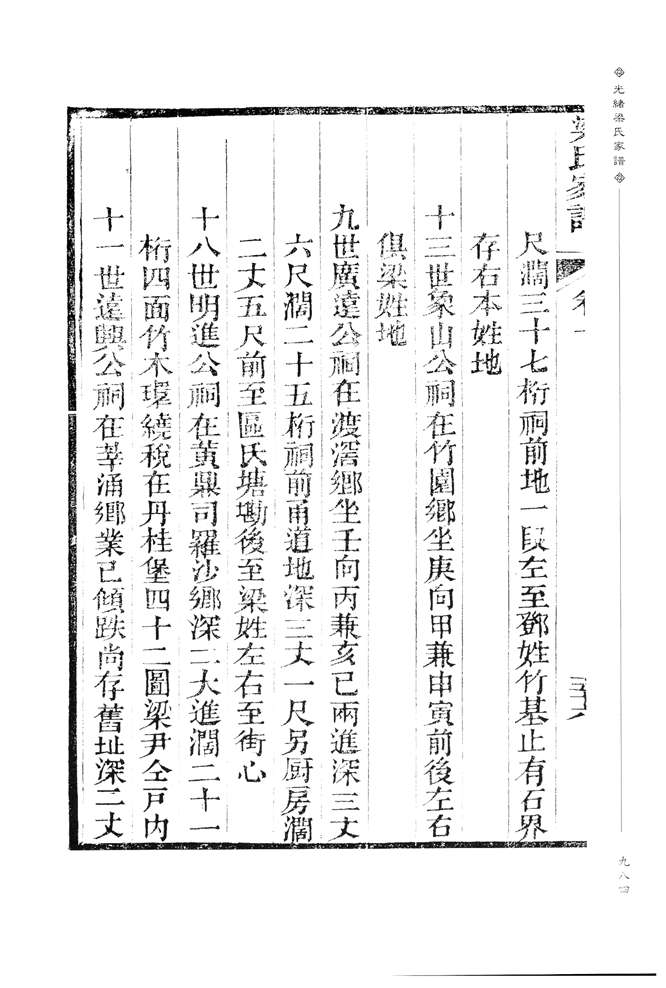 光緒梁氏家譜
梁氏家譜 卷一
尺濶三十七桁祠前地一段左至鄧姓竹基止有石界
存右本姓地
十三世象山公祠在竹園鄉坐庚向甲兼申寅前後左右
俱梁姓地
九世廣遠公祠在渡滘鄉坐壬向丙兼亥巳兩進深三丈
六尺濶二十五桁祠前甬道地深三丈一尺另厨房濶
二丈五尺前至區氏塘磡後至梁姓左右至街心
十八世明進公祠在黃鼎司羅沙鄉深二大進濶二十一
桁四面竹木環繞稅在丹桂堡四十二圖梁尹仝戶內
十一世遠興公祠在莘涌鄉業已傾跌尚存舊址深二丈
九八四